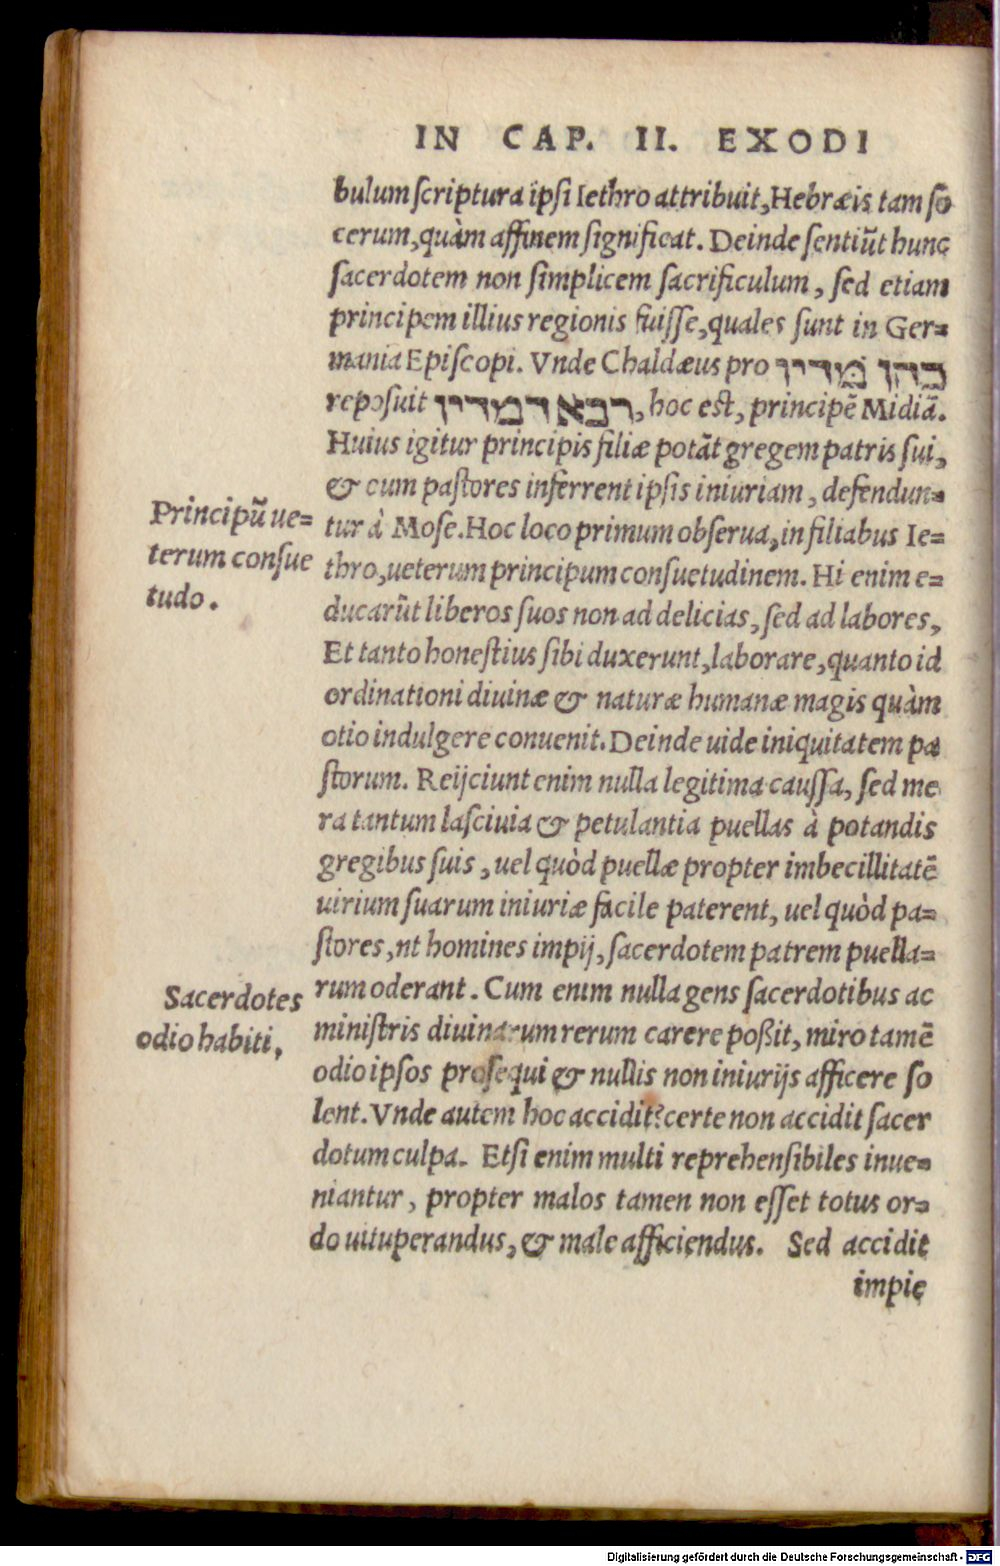 IN CAP. II. EXODI
bulum ſcriptura ipſi Iethro attribuit, Hebræis tam ſo
cerum, quàm affinem ſignificat. Deinde ſentiũt hunc
ſacerdotem non ſimplicem ſacrificulum, ſed etiam
principem illius regionis fuiſſe, quales ſunt in Ger⸗
mania Epiſcopi. Vnde Chaldæus pro כהן מדין
repoſuit רבא דמדין, hoc eſt, principẽ Midiã.
Huius igitur principis filiæ potãt gregem patris ſui,
& cum paſtores inferrent ipſis iniuriam, defendun⸗
Principũ ue⸗
terum conſue
tudo.
tur à Moſe. Hoc loco primum obſerua, in filiabus Ie⸗
thro, ueterum principum conſuetudinem. Hi enim e⸗
ducarũt liberos ſuos non ad delicias, ſed ad labores,
Et tanto honeſtius ſibi duxerunt, laborare, quanto id
ordinationi diuinæ & naturæ humanæ magis quàm
otio indulgere conuenit. Deinde uide iniquitatem pa
ſtorum. Reijciunt enim nulla legitima cauſſa, ſed me
ra tantum laſciuia & petulantia puellas à potandis
gregibus ſuis, uel quòd puellæ propter imbecillitatẽ
uirium ſuarum iniuriæ facile paterent, uel quòd pa⸗
ſtores, nt homines impij, ſacerdotem patrem puella⸗
Sacerdotes
odio habiti,
rum oderant. Cum enim nulla gens ſacerdotibus ac
miniſtris diuinarum rerum carere poßit, miro tamẽ
odio ipſos proſequi & nullis non iniurijs afficere ſo
lent. Vnde autem hoc accidit? certe non accidit ſacer
dotum culpa. Etſi enim multi reprehenſibiles inue⸗
niantur, propter malos tamen non eſſet totus or⸗
do uituperandus, & male afficiendus. Sed accidit
impie
Digitalisierung gefördert durch die Deutsche Forschungsgemeinschaft - DFG